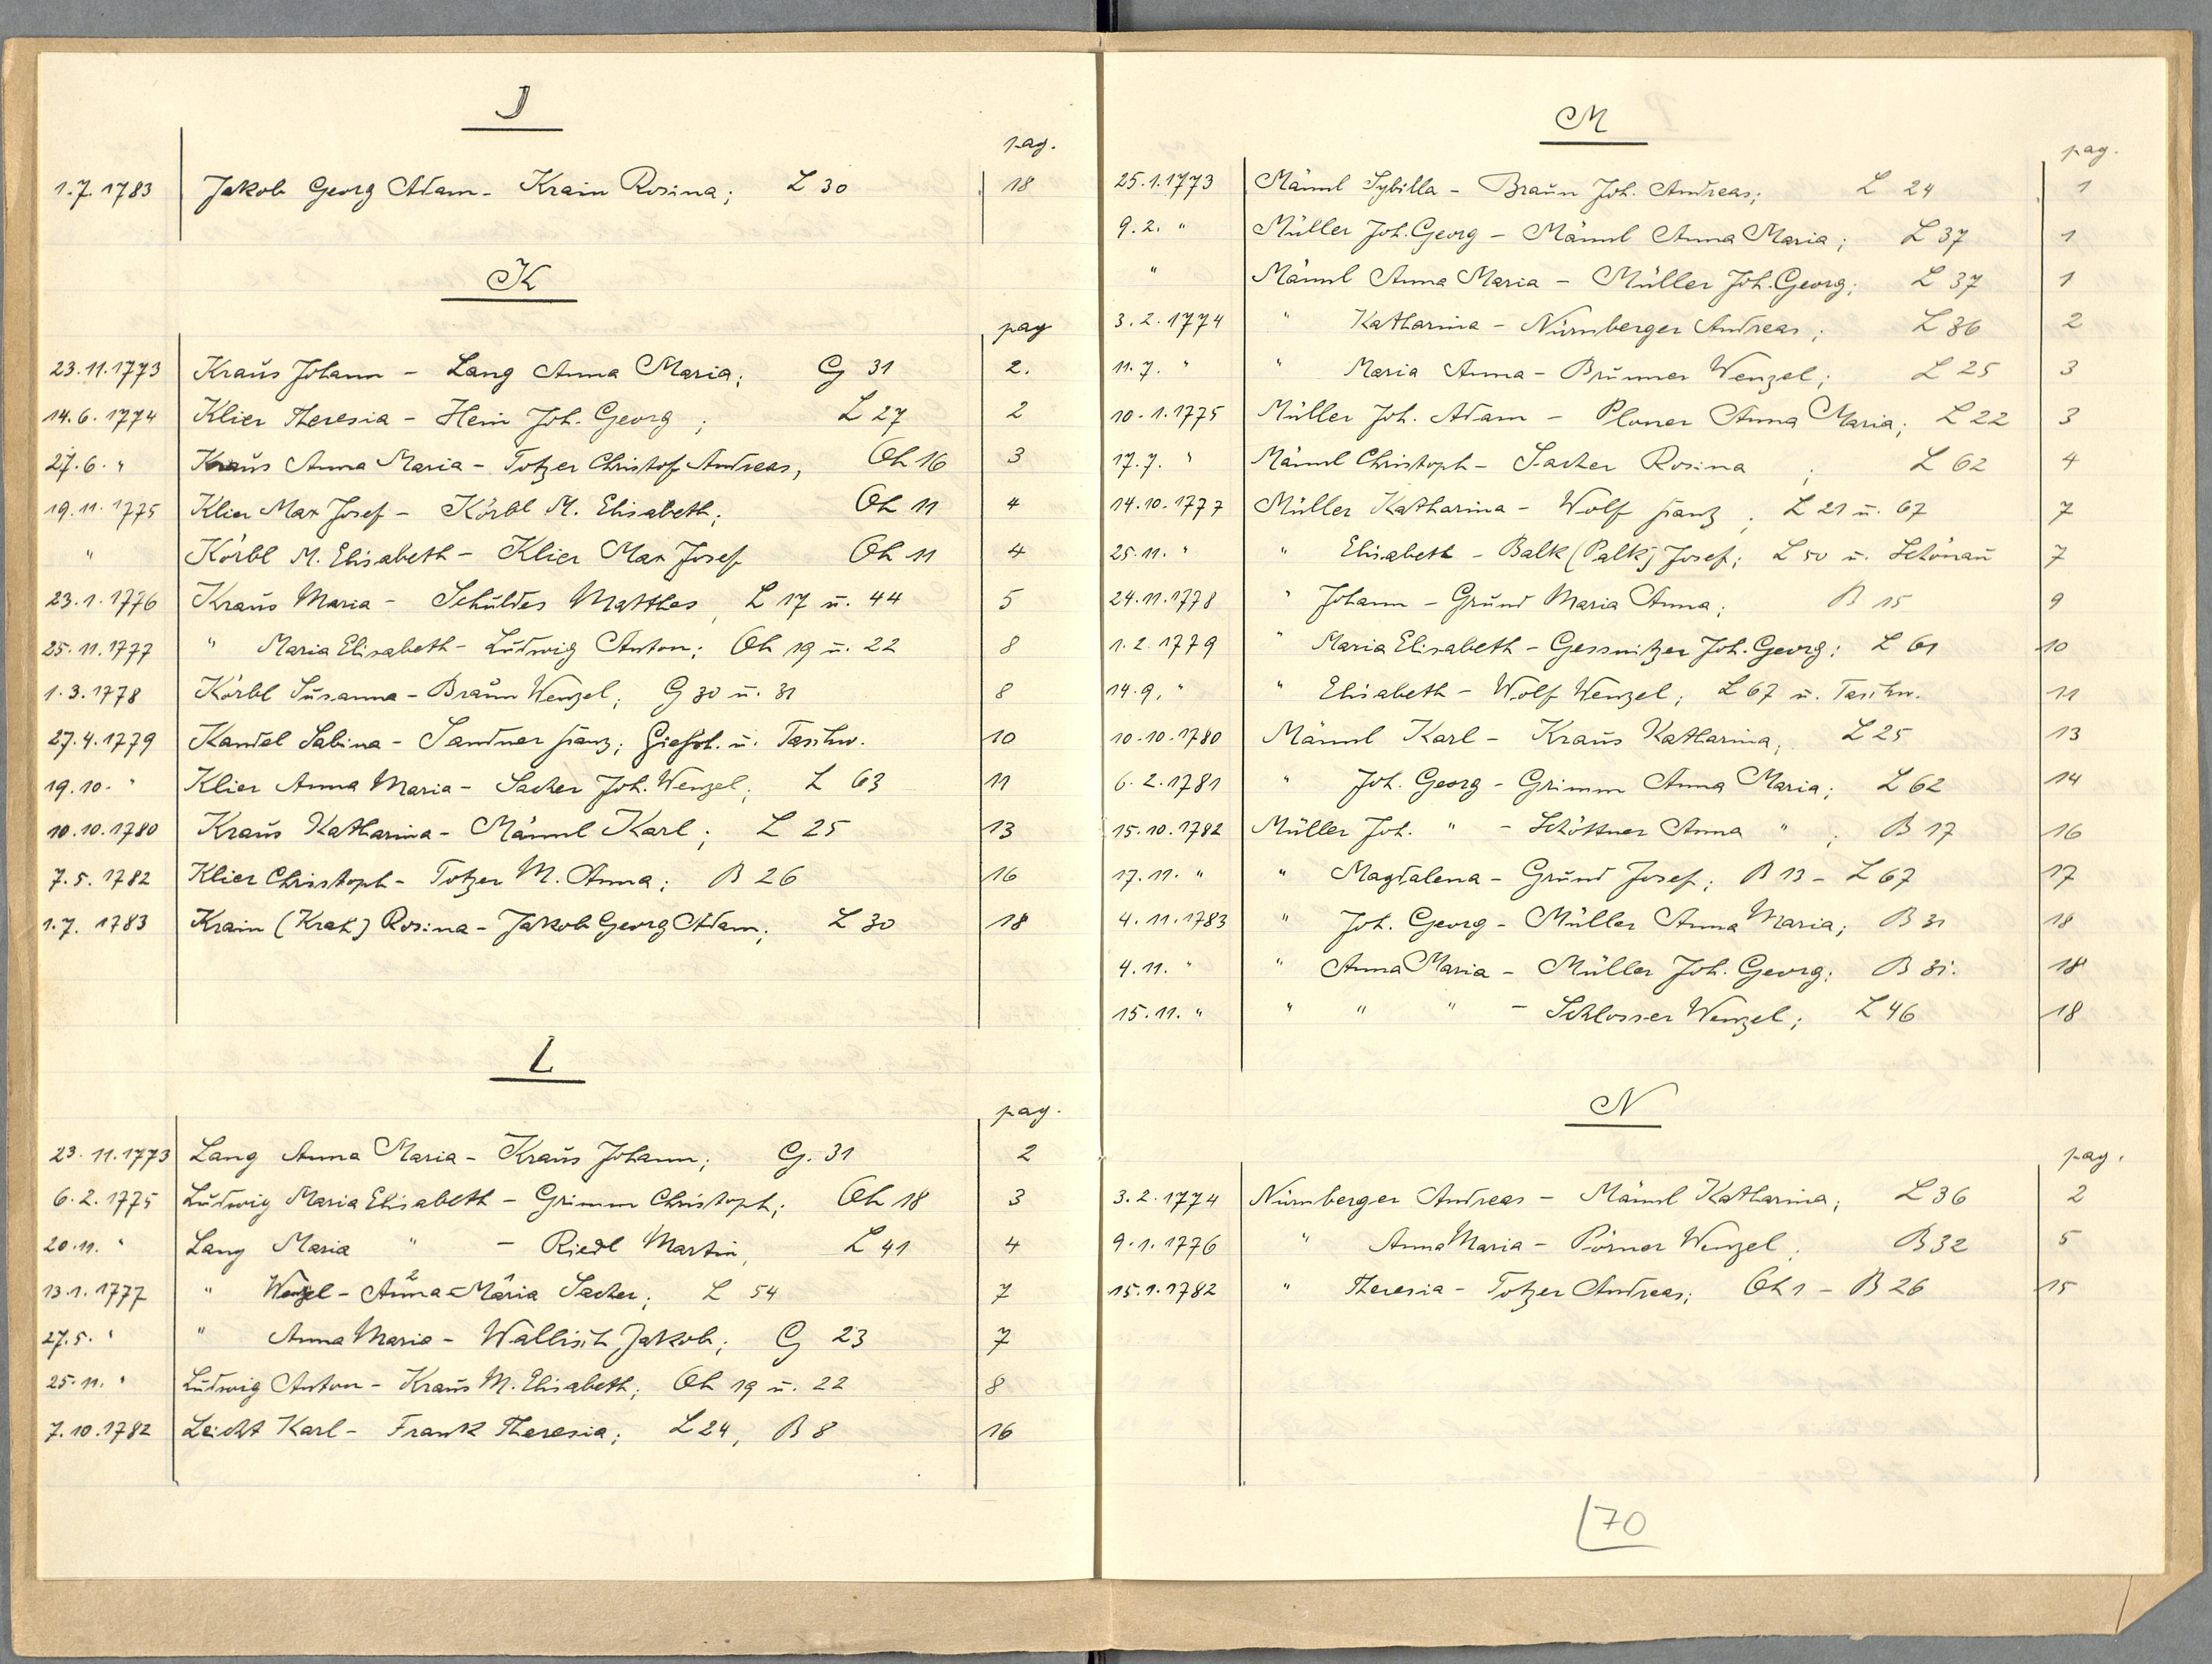 J
pag.
1.7.1783 Jakob Georg Adam - Krain Rosina; L 30 18
K
pag
23.11.1773 Kraŭs Johann - Lang Anna Maria; G 31 2.
14.6.1774 Klier Theresia - Hein Joh. Georg ; L 27 2
27.6. " Kraŭs Anna Maria - Totzer Christof Andreas, Oh 16 3
19.11.1775 Klier Max Josef - Körbl M. Elisabeth; Oh 11 4
" Körbl M. Elisabeth - Klier Max Josef Oh 11 4
23.1.1776 Kraŭs Maria - Schŭldes Matthes, L 17 ŭ. 44 5
25.11.1777 " Maria Elisabeth - Lŭdwig Anton; Oh 19 ŭ. 22 8
1.3.1778 Körbl Sŭsanna - Braŭn Wenzel; G 30 ŭ. 31 8
27.4.1779 Kandel Sabina - Sandner Franz; Gießh. ŭ. Taschw. 10
19.10. " Klier Anna Maria - Sacher Joh. Wenzel; L 63 11
10.10.1780 Kraŭs Katharina - Männl Karl; L 25 13
7.5.1782 Klier Christoph - Totzer M. Anna; B 26 16
1.7.1783 Krain (Krah) Rosina - Jakob Georg Adam; L 30 18
L
pag.
23.11.1773 Lang Anna Maria - Kraŭs Johann; G. 31 2
6.2.1775 Lŭdwig Maria Elisabeth - Grimm Christoph; Oh 18 3
20.11. " Lang Maria " - Riedl Martin, L 41 4
13.1.1777 " Wenzel - Anna Maria Sacher; L 54 7
27.5. " " Anna Maria - Wallisch Jakob; G 23 7
25.11. " Lŭdwig Anton - Kraŭs M. Elisabeth; Oh 19 ŭ. 22 8
7.10.1782 Leicht Karl - Frank Theresia; L 24, B 8 16
M
pag.
25.1.1773 Männl Sybilla - Braŭn Joh. Andreas; L 24 1
9.2. " Müller Joh. Georg - Männl Anna Maria; L 37 1
" Männl Anna Maria - Müller Joh. Georg; L 37 1
3.2.1774 " Katharina - Nürnberger Andreas; L 36 2
11.7. " " Maria Anna - Brŭnner Wenzel; L 25 3
10.1.1775 Müller Joh. Adam - Ploner Anna Maria; L 22 3
17.7. " Männl Christoph - Sacher Rosina ; L 62 4
14.10.1777 Müller Katharina - Wolf Franz; L 21 ŭ. 67 7
25.11. " " Elisabeth - Balk (Palk) Josef; L 50 ŭ. Schönaŭ 7
24.11.1778 " Johann - Grŭnd Maria Anna; B 15 9
1.2.1779 " Maria Elisabeth - Gessnitzer Joh. Georg; L 61 10
14.9. " " Elisabeth - Wolf Wenzel; L 67 ŭ. Taschw. 11
10.10.1780 Männl Karl - Kraŭs Katharina; L 25 13
6.2.1781 " Joh. Georg - Grimm Anna Maria; L 62 14
15.10.1782 Müller Joh. " - Schöttner Anna " ; B 17 16
17.11. " " Magdalena - Grŭnd Josef; B 13 - L 67 17
4.11.1783 " Joh. Georg - Müller Anna Maria; B 31 18
4.11. " " Anna Maria - Müller Joh. Georg; B 31. 18
15.11. " " " " - Schlosser Wenzel; L 46 18
N
pag.
3.2.1774 Nürnberger Andreas - Männl Katharina; L 36 2
9.1.1776 " Anna Maria - Pörner Wenzel; B 32 5
15.1.1782 " Theresia - Totzer Andreas; Oh 1 - B 26 15
70